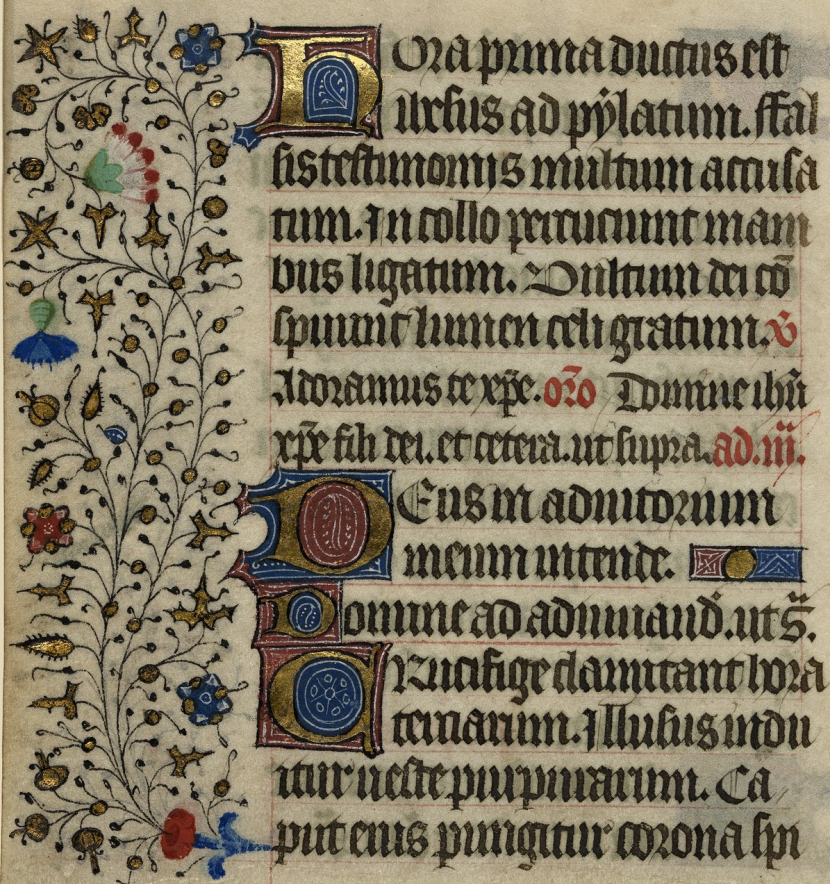 Hora prima ductus est
ihesus ad pÿlatum. ffal
sis testimonijs multum accusa
tum. In collo percuciunt mani
bus ligatum. Uultum dei cō
spuunt lumen celi gratum. v̄
Adoramus te xp̄e. or̄o Domine ihū
xp̄e fili dei. et cetera. ut supra. ad .iii.
Deus in adiutorium
meum intende.
Domine ad adiuuand̄. ut s̄.
Crucifige clamitant hora
terciarum. Illusus indu
itur ueste purpurarum. Ca
put eius pungitur corona spi